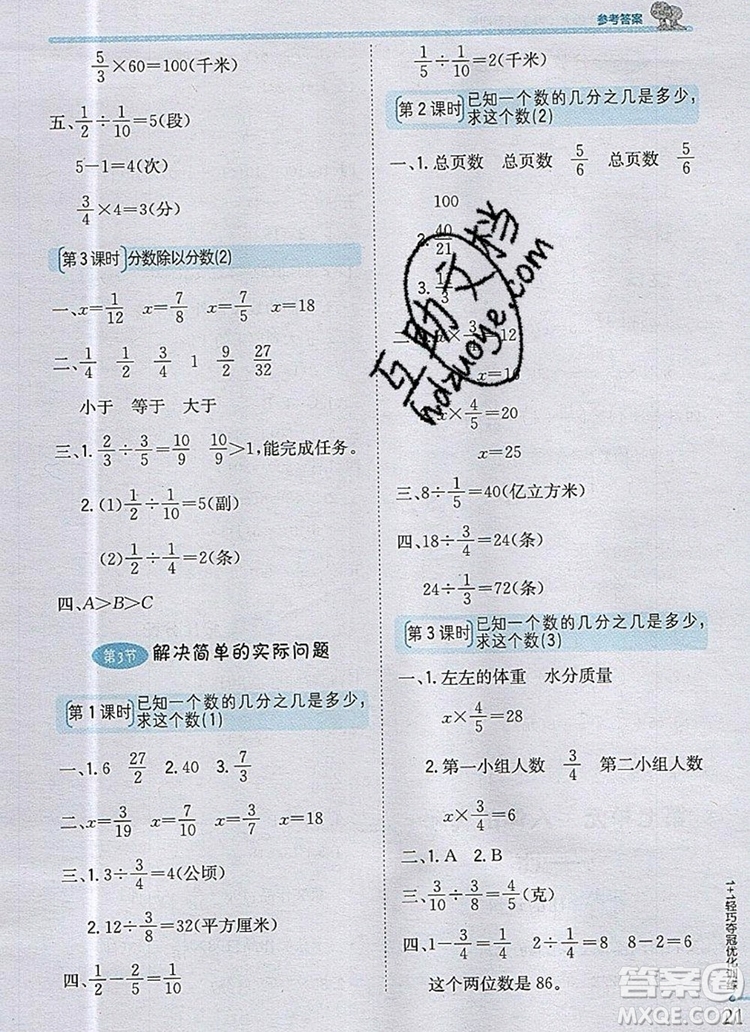 参考答案
5/3×60=100(千米)
五、1/2÷1/10=5(段)
5-1=4(次)
3/4×4=3(分)
第3课时 分数除以分数(2)
一、x=1/12 x=7/8 x=7/5 x=18
二、1/4 1/4 3/4 1 9/2 27/32
小于 等于 大于
三、1. 2/3÷3/5=10/9 10/9>1,能完成任务。
2.(1)1/2÷1/10=5(副)
(2)1/2÷1/4=2(条)
四、A>B>C
第3节 解决简单的实际问题
第1课时 已知一个数的几分之几是多少,
求这个数(1)
一、1.6 27/2 2.40 3. 7/3
二、x=3/19 x=7/10 x=7/8 x=18
三、1.3÷3/4=4(公顷)
2.12÷3/8=32(平方厘米)
四、1/2-2/5=1/10
1/5÷1/10=2(千米)
第2课时 已知一个数的几分之几是多少,
求这个数(2)
一、1.总页数 总页数 5/6 总页数 5/6
100
2. 40/21
3.
x×3/4=12
x=16
x×4/5=20
x=25
三、8÷1/5=40(亿立方米)
四、18÷3/4=24(条)
24÷1/3=72(条)
第3课时 已知一个数的几分之几是多少,
求这个数(3)
一、1.左左的体重 水分质量
x×4/5=28
2.第一小组人数 3/4 第二小组人数
x×3/4=6
二、1.A 2.B
三、3/10÷3/8=4/5(克)
四、1-3/4=1/4 2÷1/4=8 8-2=6
这个两位数是86。
1+1轻巧夺冠优化训练
21
互助文档
hdzuoye.com
答案圈
MXQE.COM